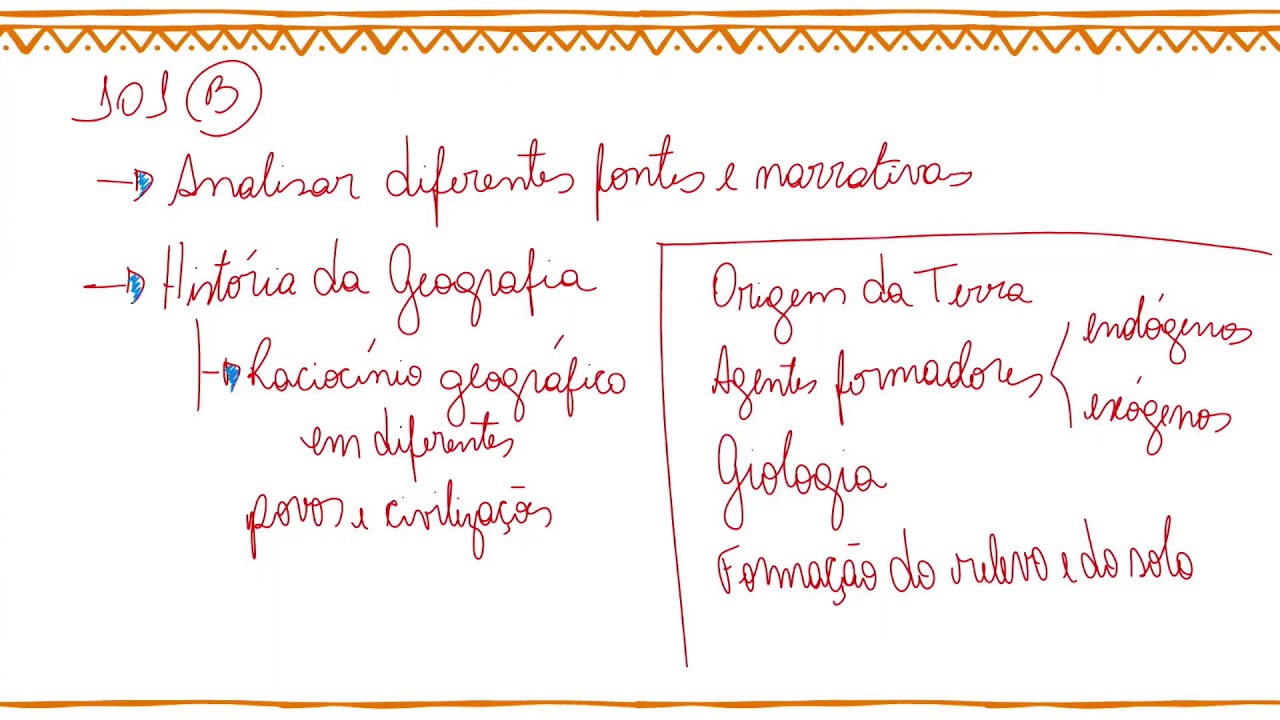 101 B
Analisar diferentes fontes e narrativas
História da Geografia
Raciocínio geográfico
em diferentes
povos e civilizações
Origem da Terra
Agentes formadores
endógenos
exógenos
Geologia
Formação do relevo e do solo